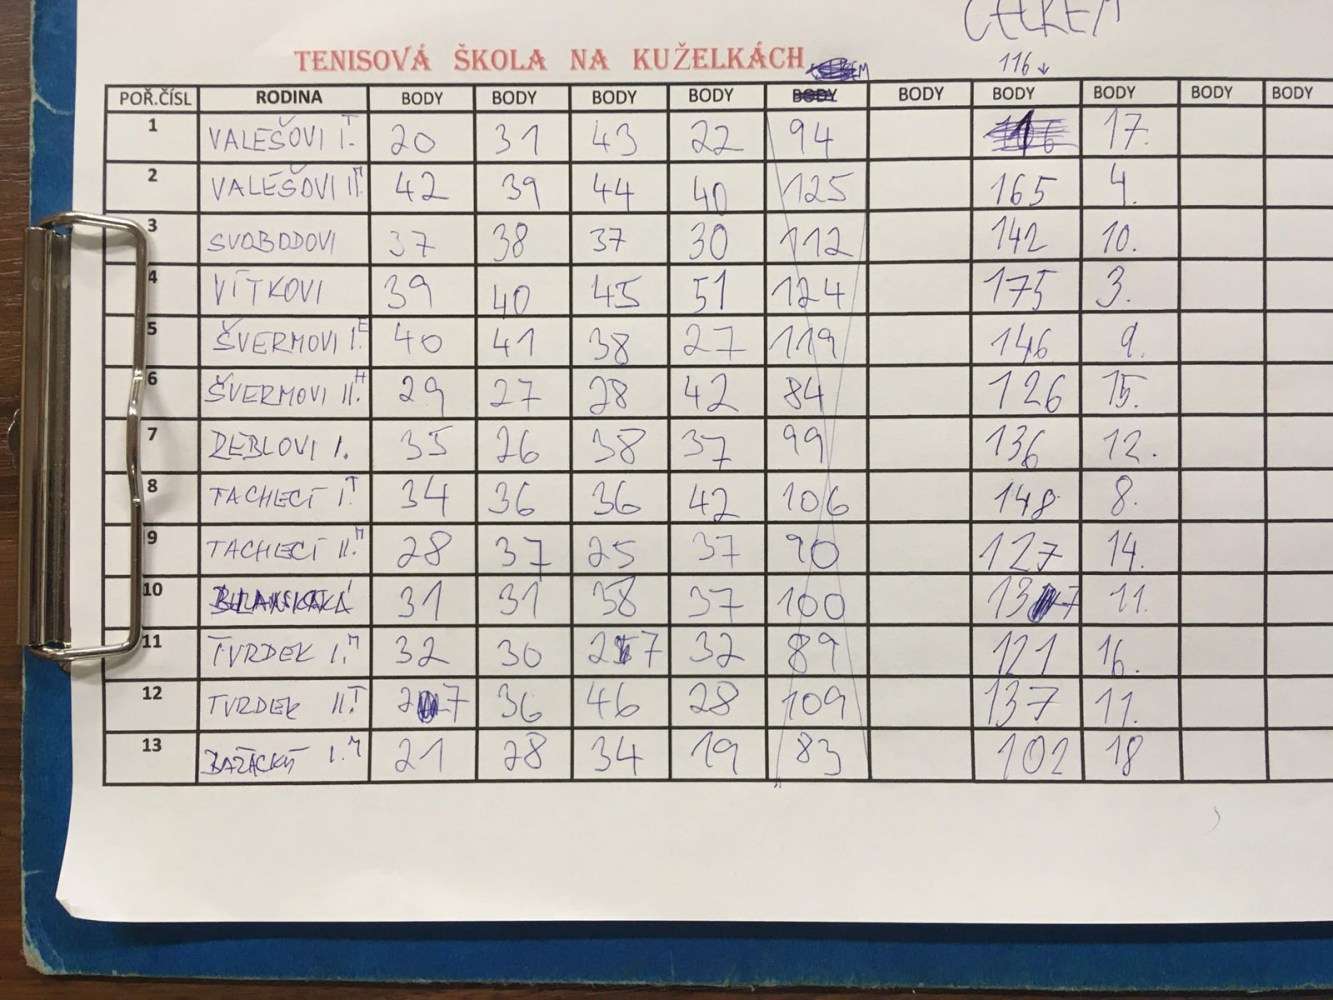 CELKEM
TENISOVÁ ŠKOLA NA KUŽELKÁCH
116↓
POŘ.ČÍSL RODINA BODY BODY BODY BODY BODY BODY BODY BODY BODY BODY
1 VALEŠOVI I.T 20 31 43 22 94 17.
2 VALEŠOVI II.M 42 39 44 40 125 165 4.
3 SVOBODOVI 37 38 37 30 112 142 10.
4 VÍTKOVI 39 40 45 51 124 175 3.
5 ŠVERMOVI I.E 40 41 38 27 119 146 9.
6 ŠVERMOVI II.H 29 27 28 42 84 126 15.
7 DEBLOVI I. 35 26 38 37 99 136 12.
8 TACHECÍ I.T 34 36 36 42 106 148 8.
9 TACHECÍ II.M 28 37 25 37 90 127 14.
10 31 31 38 37 100 137 11.
11 TVRDEK I.M 32 30 27 32 89 121 16.
12 TVRDEK II.T 27 36 46 28 109 137 11.
13 I.M 21 28 34 19 83 102 18